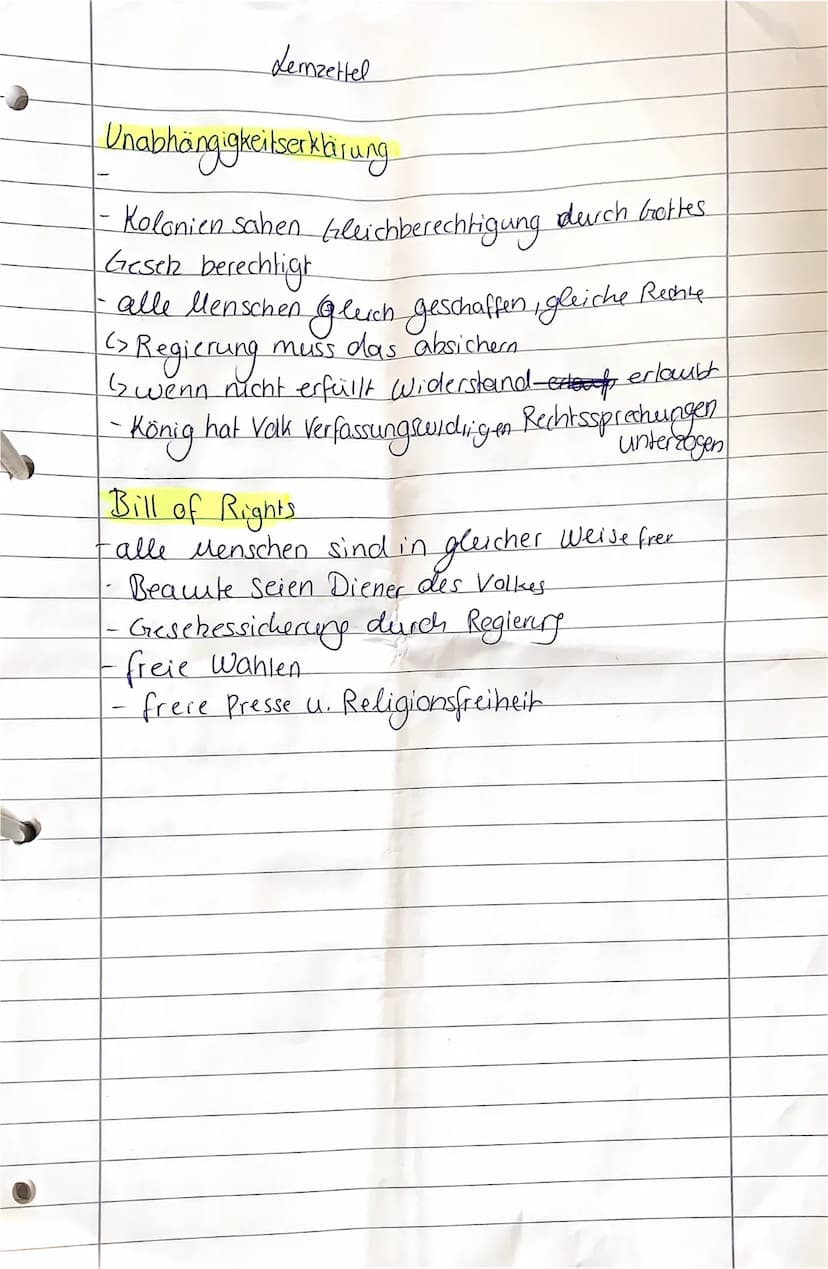 Lernzettel
Unabhängigkeitserklärung
-
- Kolonien sahen Gleichberechtigung durch Gottes
Gesetz berechtigt
- alle Menschen gleich geschaffen, gleiche Rechte
↳ Regierung muss das absichern
↳ wenn nicht erfüllt Widerstand erlaubt
- König hat Volk Verfassungswidrigen Rechtssprechungen
unterzogen
Bill of Rights
- alle Menschen sind in gleicher Weise frei
- Beamte seien Diener des Volkes
- Gesetzessicherung durch Regierung
- freie Wahlen
- freie Presse u. Religionsfreiheit